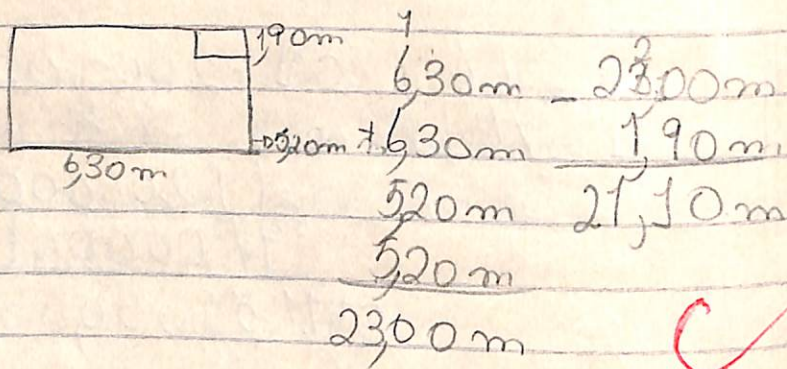 1,90m
5,20m
6,30m
1
6,30m
+ 6,30m
5,20m
5,20m
23,00m
2
- 23,00m
1,90m
21,10m